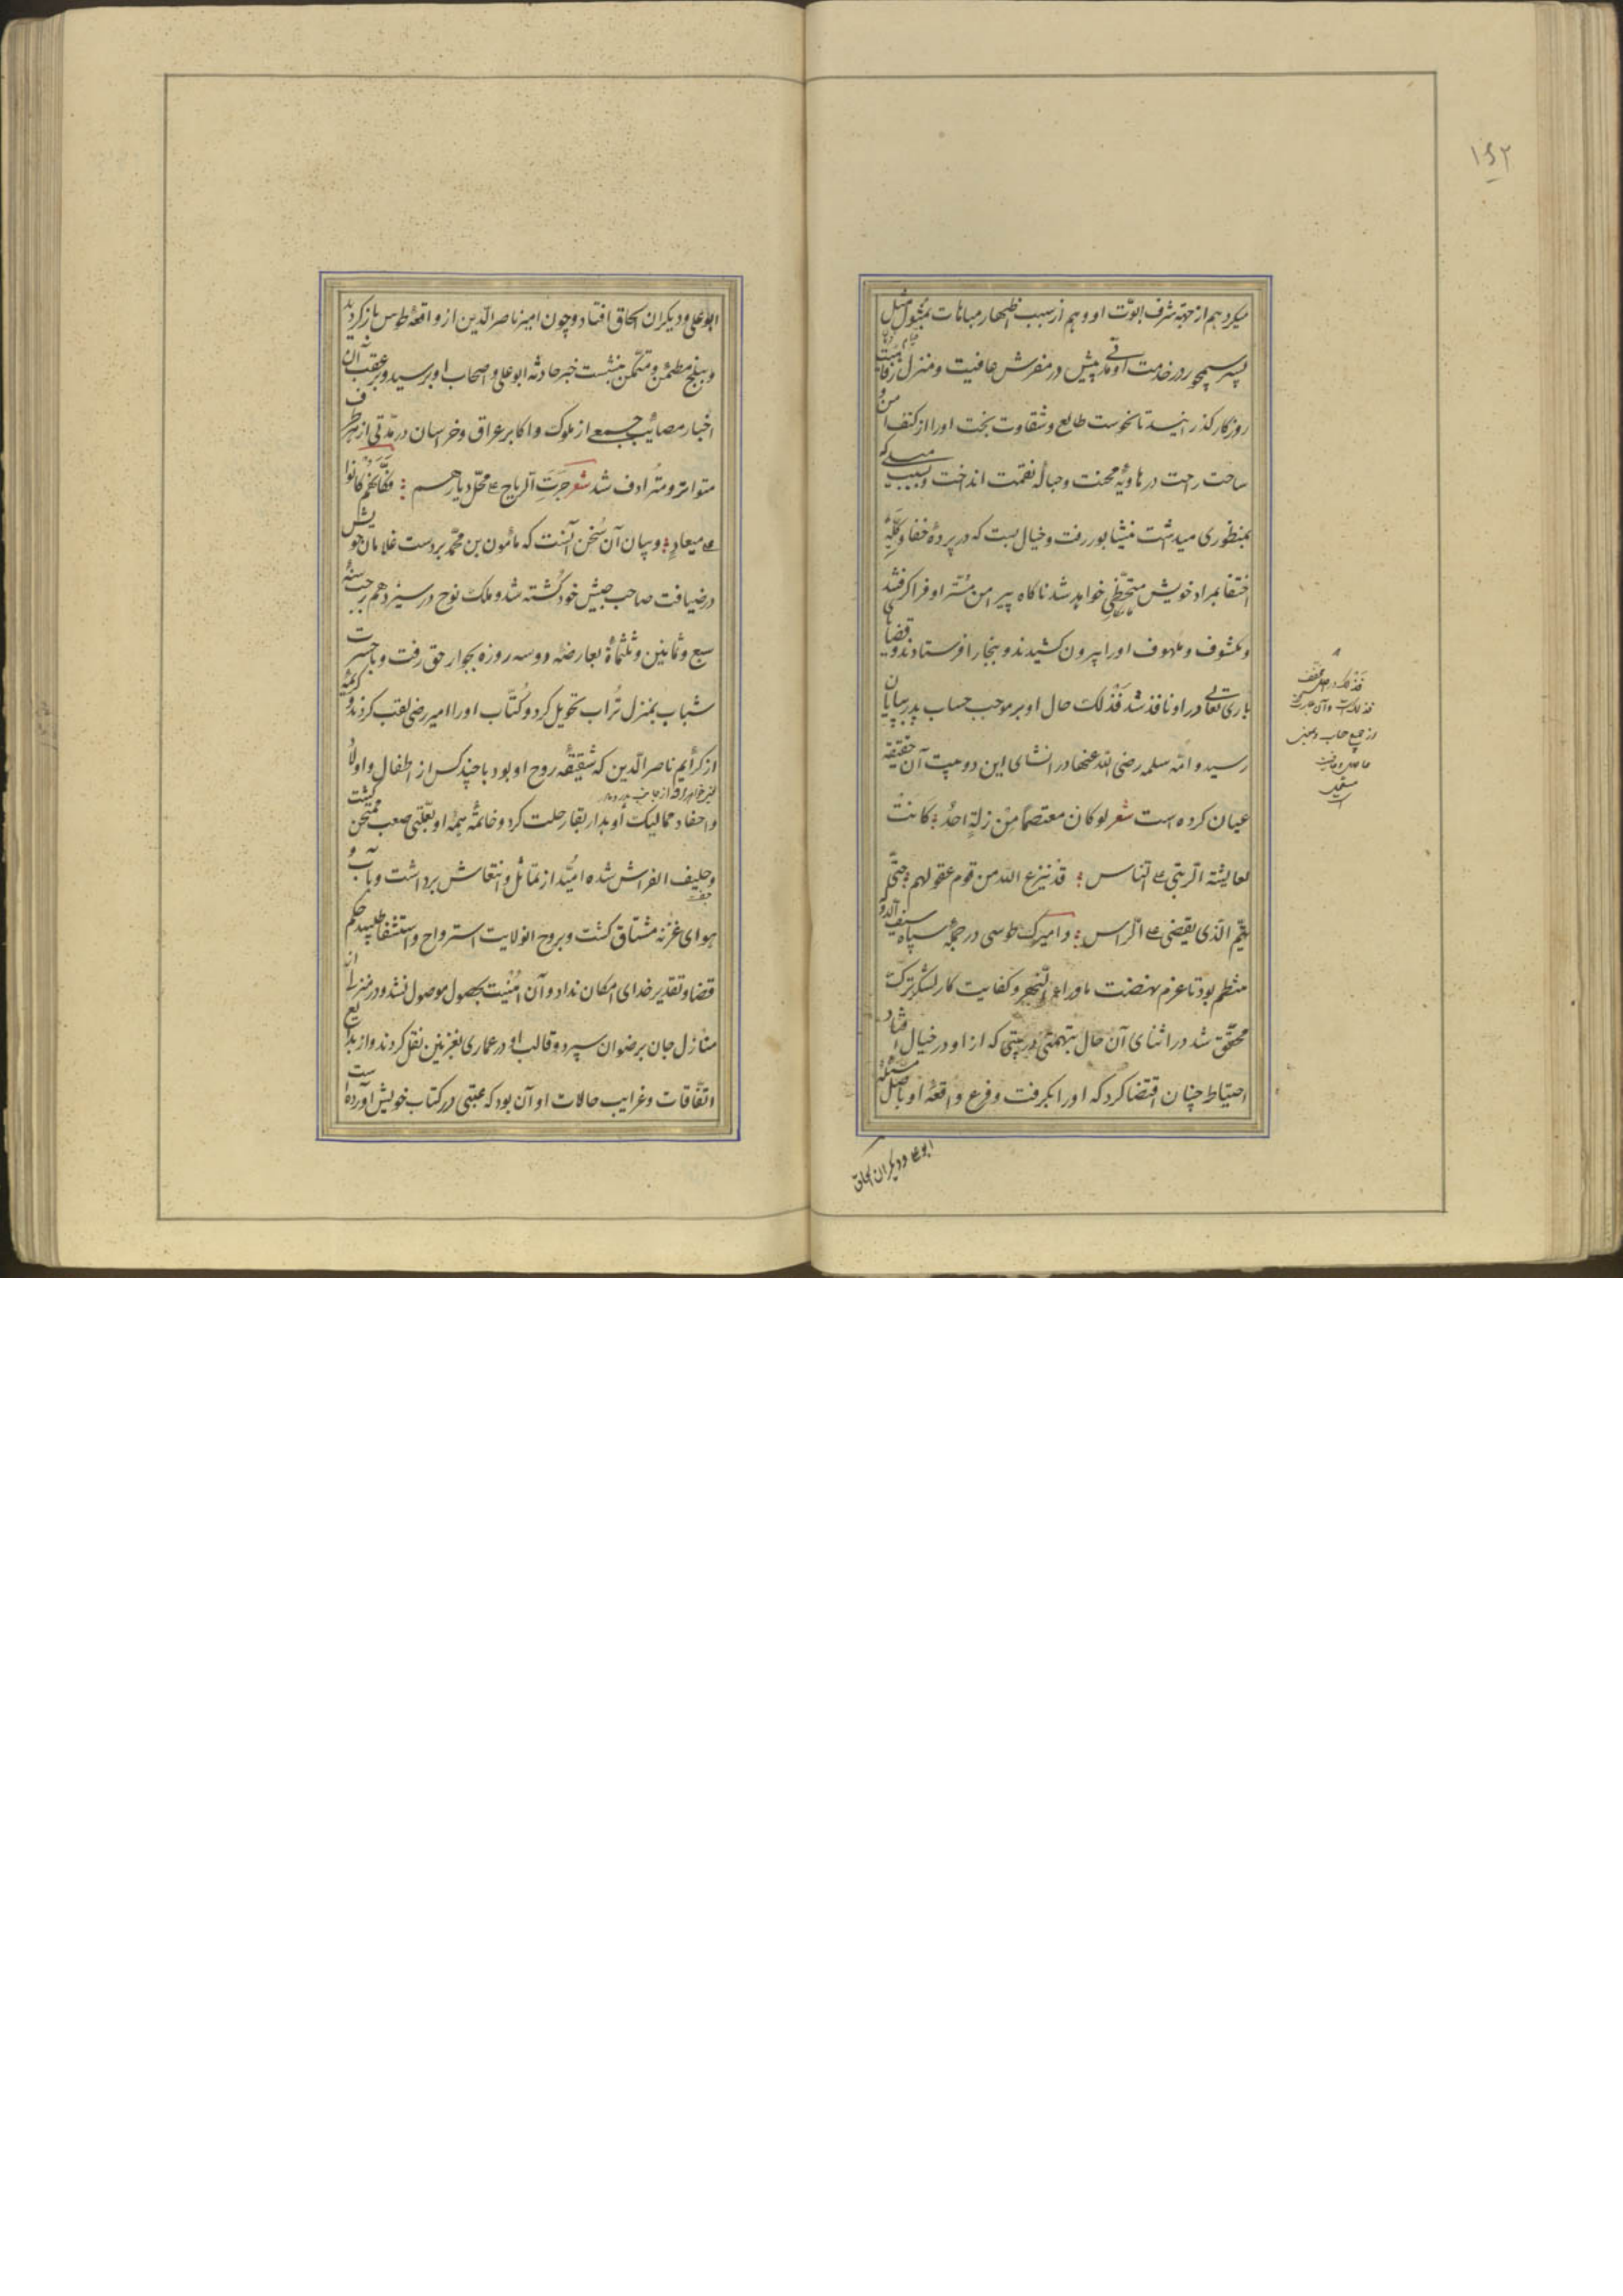 ۱۶۲
میکرد هم از جهة شرف ابوّت او و هم از سبب اظهار مباهات بمثول مثل
پسر سیمجور در خدمت او مدتی پیش در مفرش عافیت و منزل رفاهیت
روزکار کذرانید تا نحوست طالع و شقاوت بخت او را از کنف امن و
ساحت راحت در هاویهٔ محنت و حبالهٔ نقمت انداخت و بسبب میلی که
بمنظوری میداشت بنیشابور رفت و خیال بست که در پردهٔ خفا و کلّهٔ
اختفا بمراد خویش متحظّی خواهد شد ناکاه پیرامن مستتر او فرا کرفتند
و مکشوف و ملهوف او را بیرون کشیدند و ببخارا فرستادند و قضای
باری تعالی در او نافذ شد فذلک حال او بر موجب حساب پدر بپایان
رسید و امّ سلمه رضی الله عنها در انشای این دو بیت آن حقیقة
عیان کرده است شعر لو کان معتصماً من زلةٍ احدٌ ؛ کانت
لعایشة الرتبی علی الناس ؛ قد ینزع الله من قوم عقولهم ؛ حتّی
یتمّ الذی یقضی علی الرّاس ؛ و امیرک طوسی در جملهٔ سپاه سیف الدولة
منتظم بود تا عزم نهضت ماوراء النّهر و کفایت کار لشکر ترک
محقّق شد در اثنای آن حال بتهمتی و ریبتی که از او در خیال افتاد
احتیاط چنان اقتضا کرد که او را بکرفت و فرع واقعهٔ او باصل مسئلهٔ
ابو علی و دیکران الحاق
فذلک در اصل مخفف
فذلک است و آن عبارتست
از جمع حساب و بمعنی
ابو علی و دیکران الحاق افتاد و چون امیر ناصر الدّین از واقعهٔ طوس باز کردید
و ببلخ مطمئن و متمکّن بنشست خبر حادثه ابو علی و اصحاب او برسید و بر عقب آن
اخبار مصائب جمعی از ملوک و اکابر عراق و خراسان در مدّتی از هر طرف
متواتر و مترادف شد شعر جرت الریاح علی محلّ دیارهم ؛ فکأنّهم کانوا
علی میعادٍ ؛ و بیان آن سخن آنست که مأمون بن محمّد بر دست غلامان خویش
در ضیافت صاحب جیش خود کشته شد و ملک نوح در سیزدهم رجب سنهٔ
سبع و ثمانین و ثلثمأة بعارضهٔ دو سه روزه بجوار حق رفت و با حسرت
شباب بمنزل تراب تحویل کرد و کتّاب او را امیر رضی لقب کردند و کریمهٔ
از کرایم ناصر الدّین که شقیقهٔ روح او بود با چند کس از اطفال و اولاد
و احفاد ممالیک او بدار بقا رحلت کرد و خاتمه همه او بعلّتی صعب ممتحن کشت
و حلیف الفراش شده امید از تماثل و انتعاش برداشت و بآب و
هوای غزنه مشتاق کشت و بروح انولایت استرواح و استشفا طلبید حکم
قضا و تقدیر خدای امکان نداد و آن امنیت بحصول موصول نشد و در منزلی از
منازل جان برضوان سپرد و قالب او در عماری بغزنین نقل کردند و از بدایع
اتّفاقات و غرایب حالات او آن بود که عتبی در کتاب خویش آورده است